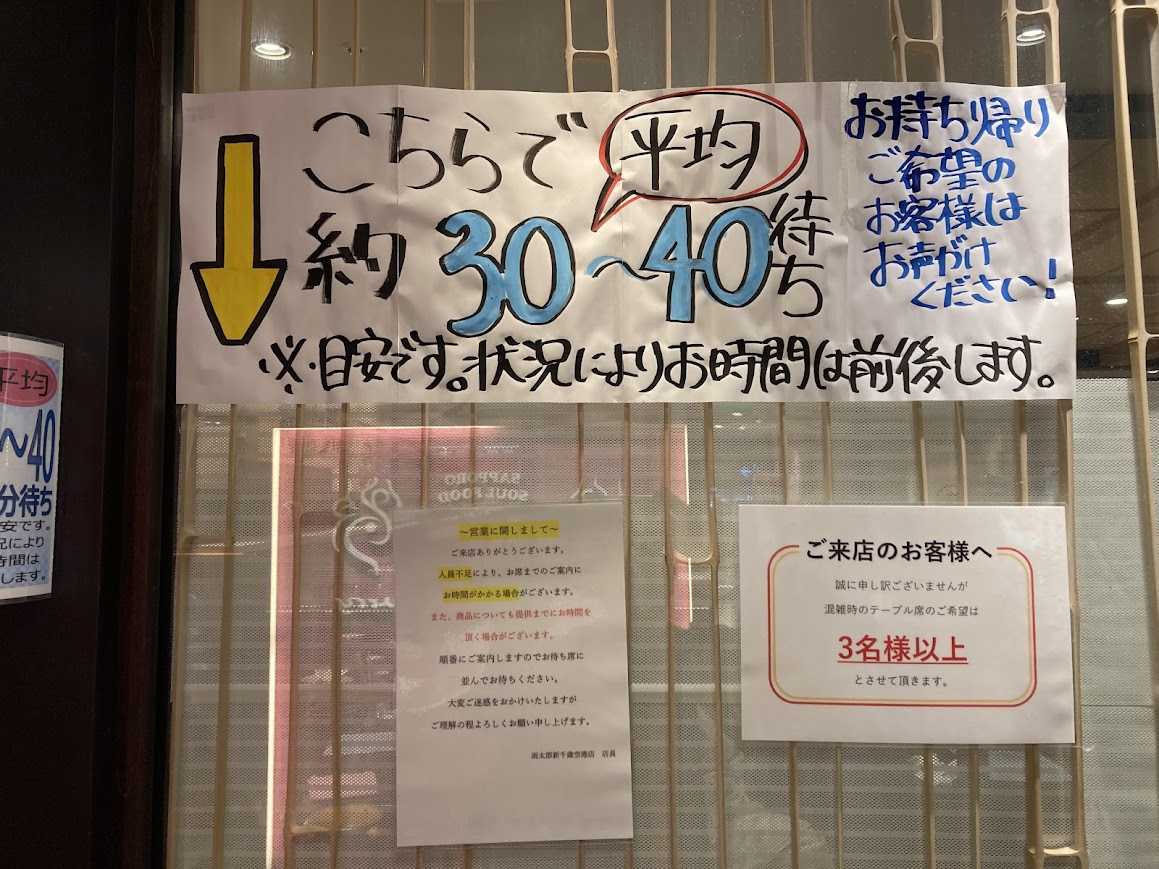 こちらで
平均
約30~40待ち
※目安です。状況によりお時間は前後します。
お持ち帰り
ご希望の
お客様は
お声がけ
ください!
平均
~40
分待ち
安です。
況により
時間は
します。
SAPPORO
SOUL FOOD
~営業に関しまして~
ご来店ありがとうございます。
人員不足により、お席までのご案内に
お時間がかかる場合がございます。
また、商品についても提供までにお時間を
頂く場合がございます。
順番にご案内しますのでお待ち席に
並んでお待ちください。
大変ご迷惑をおかけいたしますが
ご理解の程よろしくお願い申し上げます。
新千歳空港店 店長
ご来店のお客様へ
誠に申し訳ございませんが
混雑時のテーブル席のご希望は
3名様以上
とさせて頂きます。